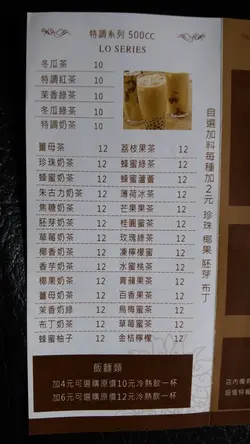 特調系列 500cc
LO SERIES
冬瓜茶 10
特調紅茶 10
茉香綠茶 10
冬瓜綠茶 10
特調奶茶 10
薑母茶 12
珍珠奶茶 12
蜂蜜奶茶 12
朱古力奶茶 12
焦糖奶茶 12
胚芽奶茶 12
草莓奶茶 12
椰香奶茶 12
香芋奶茶 12
椰果奶茶 12
薑母奶茶 12
茉香奶綠 12
布丁奶茶 12
蜂蜜柚子 12
荔枝果茶 12
蜂蜜綠茶 12
蜂蜜蘆薈 12
薄荷冰茶 12
芒果果茶 12
桂圓蜜茶 12
玫瑰綠茶 12
凍檸檬蜜 12
水蜜桃茶 12
青蘋果茶 12
百香果茶 12
烏梅蜜茶 12
草莓蜜茶 12
金桔檸檬 12
自選加料每種加2元 珍珠 椰果 胚芽 布丁
飯麵類
加4元可選購原價10元冷熱飲一杯
加6元可選購原價12元冷熱飲一杯